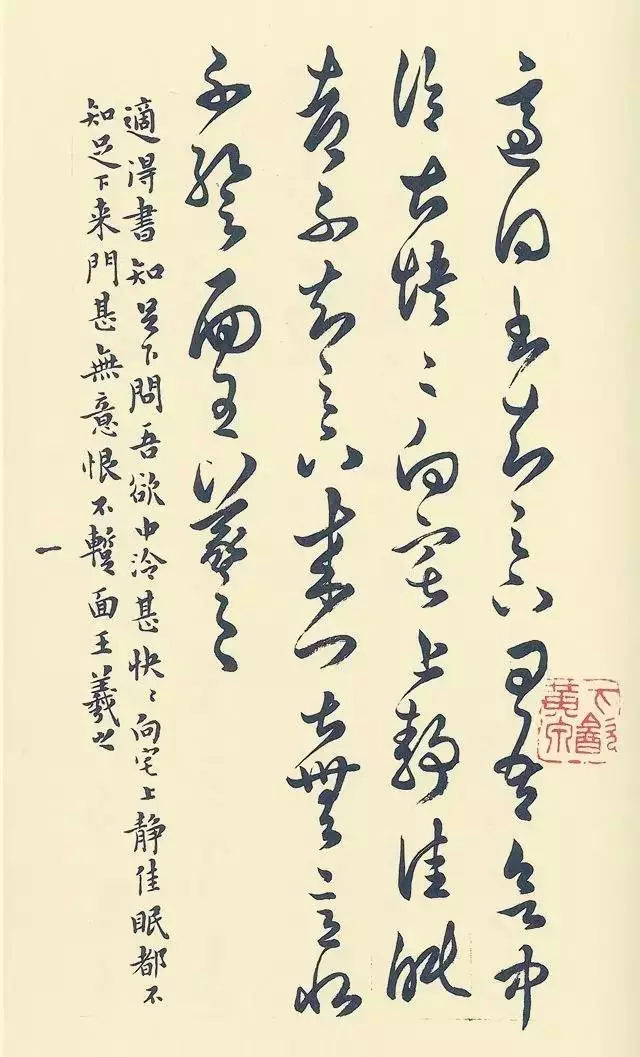 適得書知足下問吾欲中
冷甚快〻向宅上静佳眠
都不知足下来門甚無意恨
不暫面王羲之
適得書知足下問吾欲中冷甚快〻向宅上静佳眠都不
知足下来門甚無意恨不暫面王羲之
一